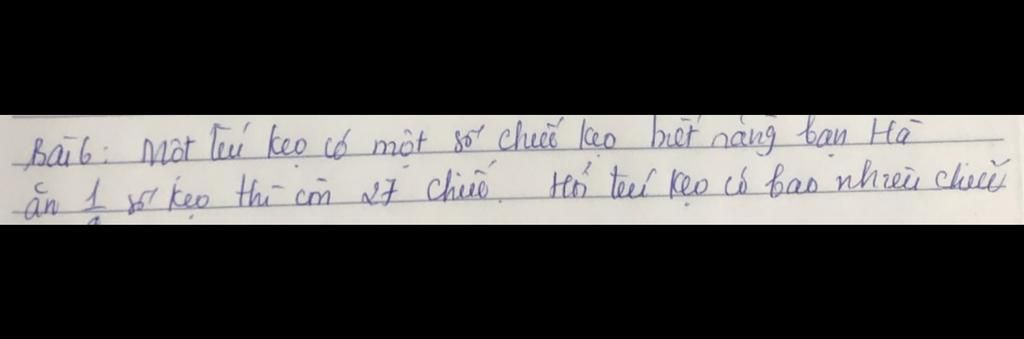 Bài 6: Một túi kẹo có một số chiếc kẹo biết rằng bạn Hà
ăn 1 số kẹo thì còn 27 chiếc. Hỏi túi kẹo có bao nhiêu chiếc